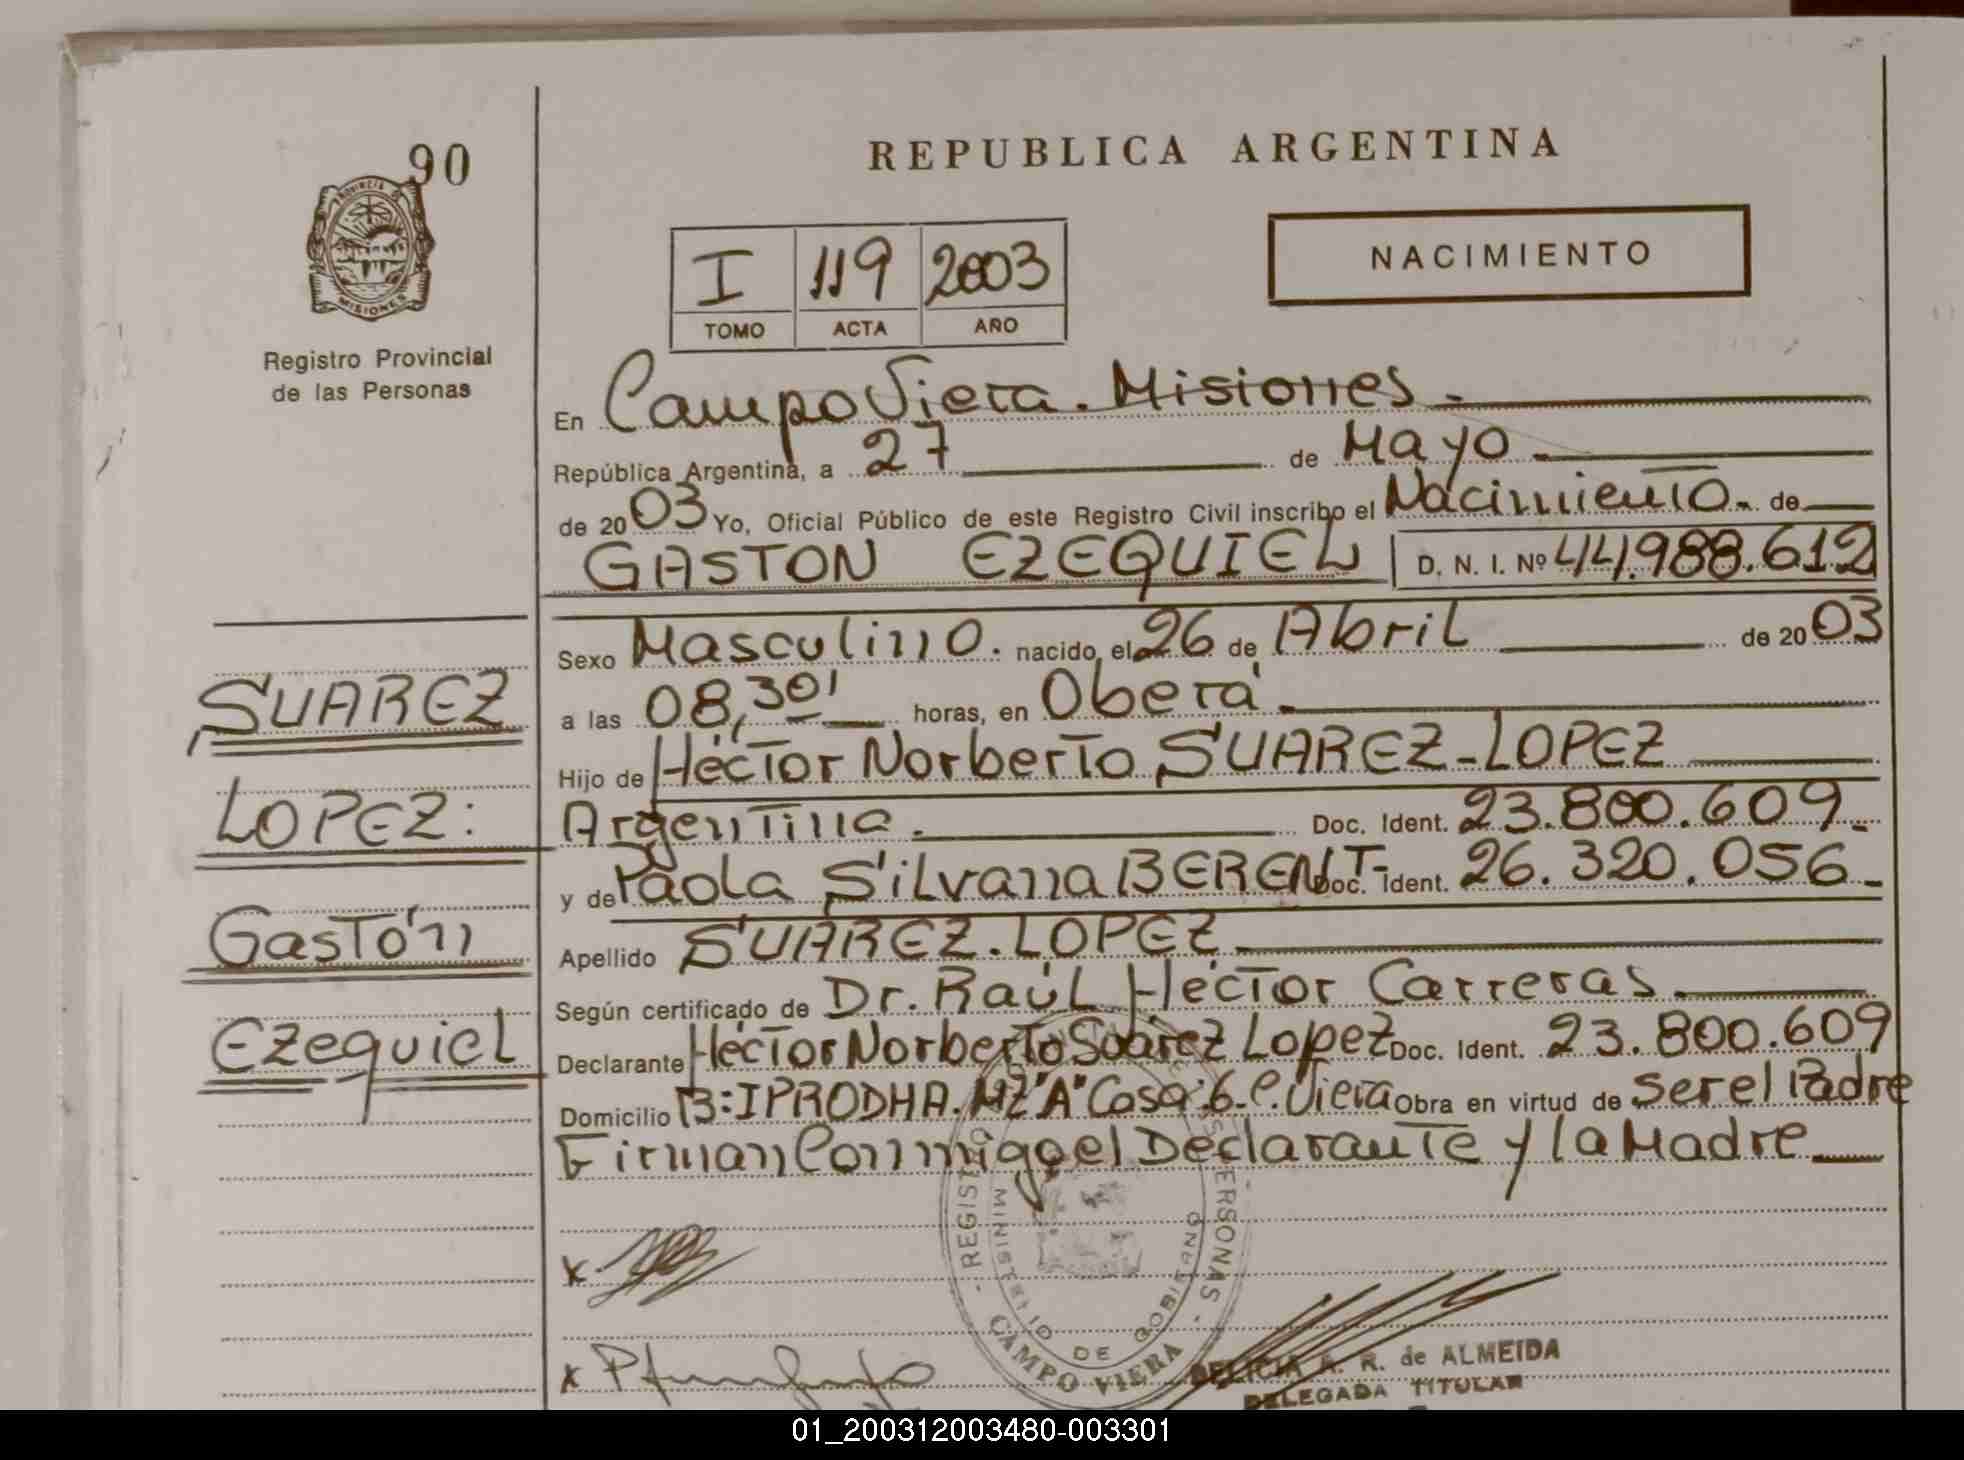 90
REPUBLICA ARGENTINA
PROVINCIA DE MISIONES
Registro Provincial
de las Personas
I 119 2003
TOMO ACTA AÑO
NACIMIENTO
En Campo Viera. Misiones.
República Argentina, a 27 de Mayo
de 2003 Yo, Oficial Público de este Registro Civil inscribo el Nacimiento. de
GASTON EZEQUIEL D. N. I. Nº 44.988.612
Sexo Masculino. nacido el 26 de Abril de 2003
a las 08,30' horas, en Oberá
Hijo de Héctor Norberto SUAREZ-LOPEZ
Argentina. Doc. Ident. 23.800.609.
y de Paola Silvana BERENT- Doc. Ident. 26.320.056
Apellido SUAREZ.LOPEZ
Según certificado de Dr. Raúl Héctor Carreras
Declarante Héctor Norberto Suárez Lopez Doc. Ident. 23.800.609
Domicilio B:IPRODHA.MZ"A"Casa 6.C.Viera Obra en virtud de ser el Padre
Firman Conmigo el Declarante y la Madre
SUAREZ
LOPEZ:
Gastón
Ezequiel
REGISTRO PERSONAS
MINISTERIO DE GOBIERNO
CAMPO VIERA
DELICIA A. R. de ALMEIDA
DELEGADA TITULAR
01_200312003480-003301